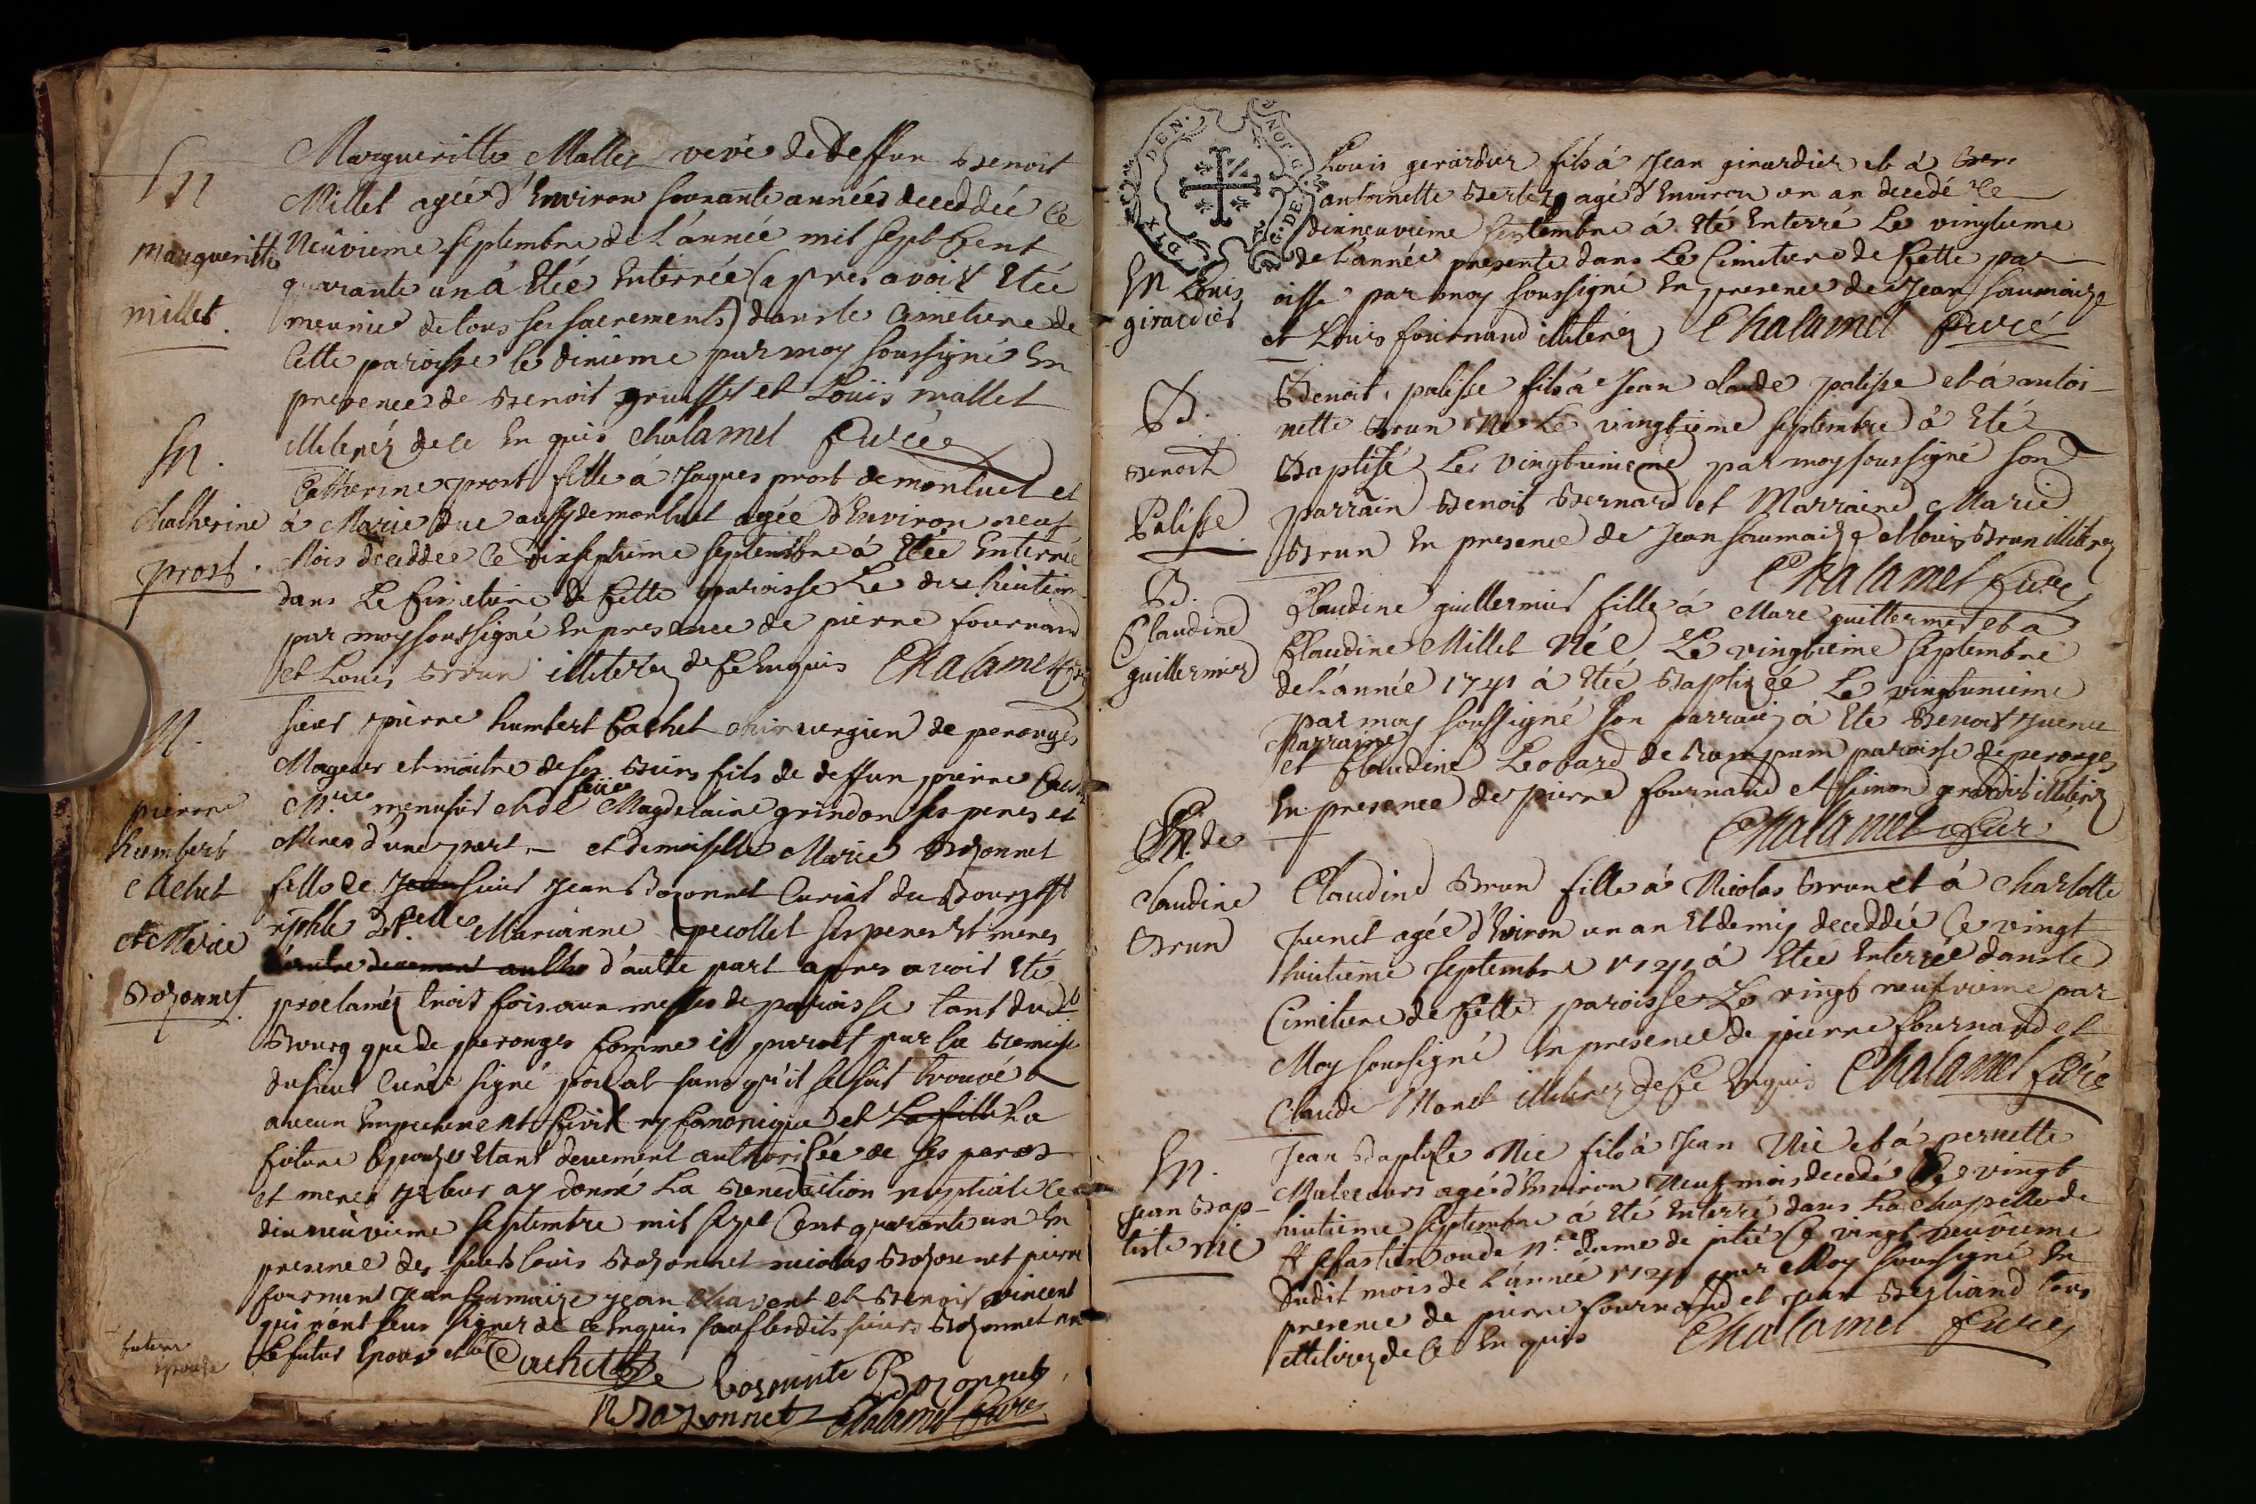 En
Margueritte
millet.
Margueritte Mallet veve de deffun Benoit
Millet agée d'Environ soixante années deceddée le
Neuvieme septembre de L'année mil sept Cent
quarante un á Etée Enterrée (apres avoir Etée
meunie de tous ses sacrements) dans le Cimetiere de
Cette paroisse le dixieme par moy soussigné En
presence de Benoit et Louis mallet
illiterez de ce En quis Chalamel Curé
En.
Chatherine
prost.
Catherine prost fille á Jaques prost de montluel et
á Marie duc aussy de montluel agée d'Environ neuf
Mois deceddée le dixseptieme septembre á Etée Enterrée
dans Le Cimetiere de Cette paroisse Le dix huitieme
par moy soussigné En presence de pierre fournand
et Louis Brun illiterez de Ce Enquis Chalamel
M.
pierre
humbert
Cachet
et Marie
Bozonnet.
sieur pierre humbert Cachet chirurgien de perouges
Mageur et maitre de ses Biens fils de deffun pierre
menusier et de feüe Magdelaine grindon ses peres et
Meres d'une part, - et demoiselle Marie Bozonnet
fille de Jean sieur Jean Bozonnet Curial du Bourg st
Marianne pecollet ses peres et meres
d'autre part apres avoir Eté
proclaméz trois fois aux messes de paroisse tant dudt
Bourg que de perouges Comme il paroit par la Remise
du sieur Curé signé sans qu'il se soit trouvé
aucun Empechement Civil ny Canonique et La fille La
future Epouse Etant deuement authorisée de ses peres
et meres je leur ay donné La Benediction nuptiale le
dix neuvieme septembre mil sept Cent quarante un En
presence des sieurs Louis Bozonnet nicolas Bozonnet pierre
fourment Jean saumaize jean Chavent et Benoit vincent
qui n'ont seus signer de ce enquis sauf lesdits sieurs Bozonnet
Le futur Epoux et la
future
Epouse
Cachet
Bozonnet
N Bozonnet Chalamel Curé
DEN. NOT. G. DE DIX
En Louis
girardier
Louis gerardier fils á Jean girardier et á
antoinette Berlez agé d'Environ un an decedé le
dixneuvieme septembre á Eté Enterré Le vingtieme
de L'année presente dans Le Cimetiere de Cette par-
oisse par moy soussigné En presence de Jean saumaize
et Louis fournand illiteréz Chalamel Curé
B.
Benoit
Palisse
Benoit, palisse fils á Jean claude palisse et á antoi-
nette Brun Né Le vingtieme septembre á Eté
Baptisé Le vingtunieme par moy soussigné son
parrain Benoit Bernard et Marraine Marie
Brun En presence de Jean saumaize et Louis Brun illiterez
Chalamel Curé
B.
Claudine
guillermier
Claudine guillermier fille á Marc guillermier et a
Claudine Millet Née Le vingtieme septembre
de L'année 1741 á Etée Baptizée Le vingtunieme
par moy soussigné son parrain á Eté Benoit
Marraine
et Claudine Leobard de Rampom paroisse de perouges
En presence de pierre fournand et simon gerardier illiterez
Chalamel Cur
En. de
Claudine
Brun
Claudine Brun fille á Nicolas Brun et á Charlotte
Juenet agée d'Environ un an Et demy deceddée Ce vingt
huitieme septembre 1741 á Etée Enterrée dans le
Cimetiere de Cette paroisse Le vingt neufvieme par
Moy soussigné En presence de pierre fournand et
Claude Monet illiterez de Ce Enquis Chalamel Curé
En.
Jean Bap-
tiste nié
Jean Baptiste Nié fils á Jean Nié et á pernette
Malecours agé d'Environ Neuf mois decedé Le vingt
huitieme septembre á Eté Enterré dans La chapelle de
st sebastien ou de N.re dame de pitié Ce vingt neuvieme
dudit mois de L'année 1741 par Moy soussigné En
presence de pierre fournand et Jean tous
illiterez de Ce En quis Chalamel Curé